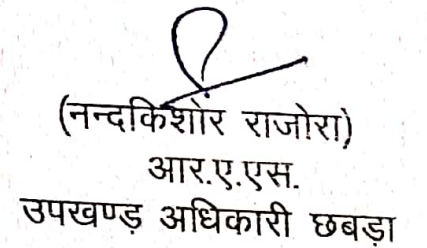 (नन्दकिशोर राजोरा)
आर.ए.एस.
उपखण्ड़ अधिकारी छबड़ा